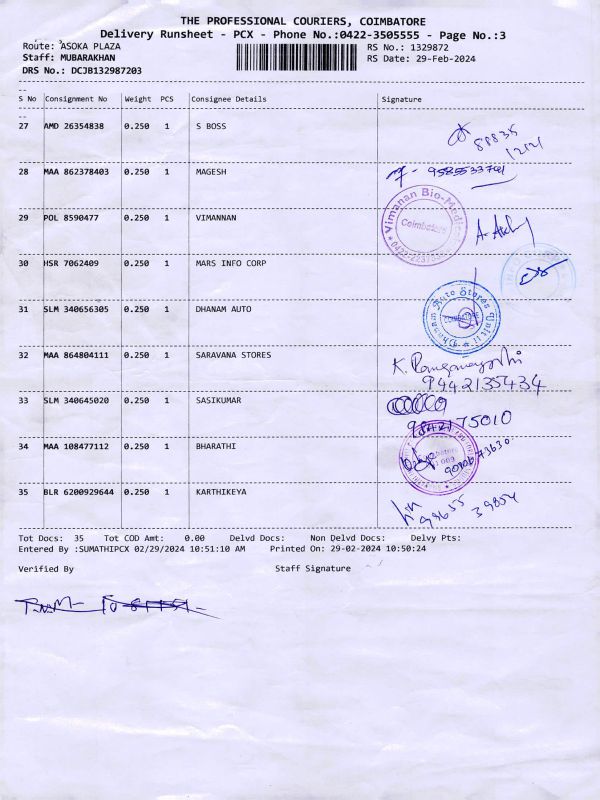 THE PROFESSIONAL COURIERS, COIMBATORE
Delivery Runsheet - PCX - Phone No.:0422-3505555 - Page No.:3
Route: ASOKA PLAZA RS No.: 1329872
Staff: MUBARAKHAN RS Date: 29-Feb-2024
DRS No.: DCJB132987203
S No Consignment No Weight PCS Consignee Details Signature
27 AMD 26354838 0.250 1 S BOSS
88835
12121
28 MAA 862378403 0.250 1 MAGESH
29 POL 8590477 0.250 1 VIMANNAN
Vimanan Bio-Medical
Coimbatore
30 HSR 7062409 0.250 1 MARS INFO CORP
31 SLM 340656305 0.250 1 DHANAM AUTO
Dhanam Auto Stores Unit II
COIMBATORE
32 MAA 864804111 0.250 1 SARAVANA STORES
9442135434
33 SLM 340645020 0.250 1 SASIKUMAR
9842175010
34 MAA 108477112 0.250 1 BHARATHI
35 BLR 6200929644 0.250 1 KARTHIKEYA
99655 39854
Tot Docs: 35 Tot COD Amt: 0.00 Delvd Docs: Non Delvd Docs: Delvy Pts:
Entered By :SUMATHIPCX 02/29/2024 10:51:10 AM Printed On: 29-02-2024 10:50:24
Verified By Staff Signature